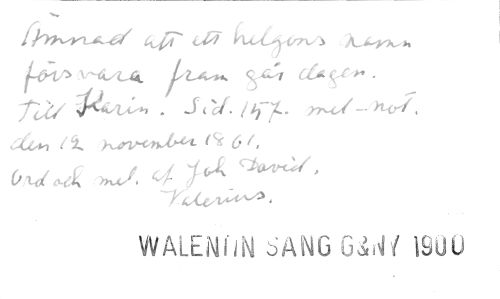 Ämnad att ett helgons namn
försvara fram går dagen.
Till Karin. Sid. 157. mel-not.
den 12 november 1861.
Ord och mel. af Joh David.
Valerius.
WALENTIN SANG G&NY 1900